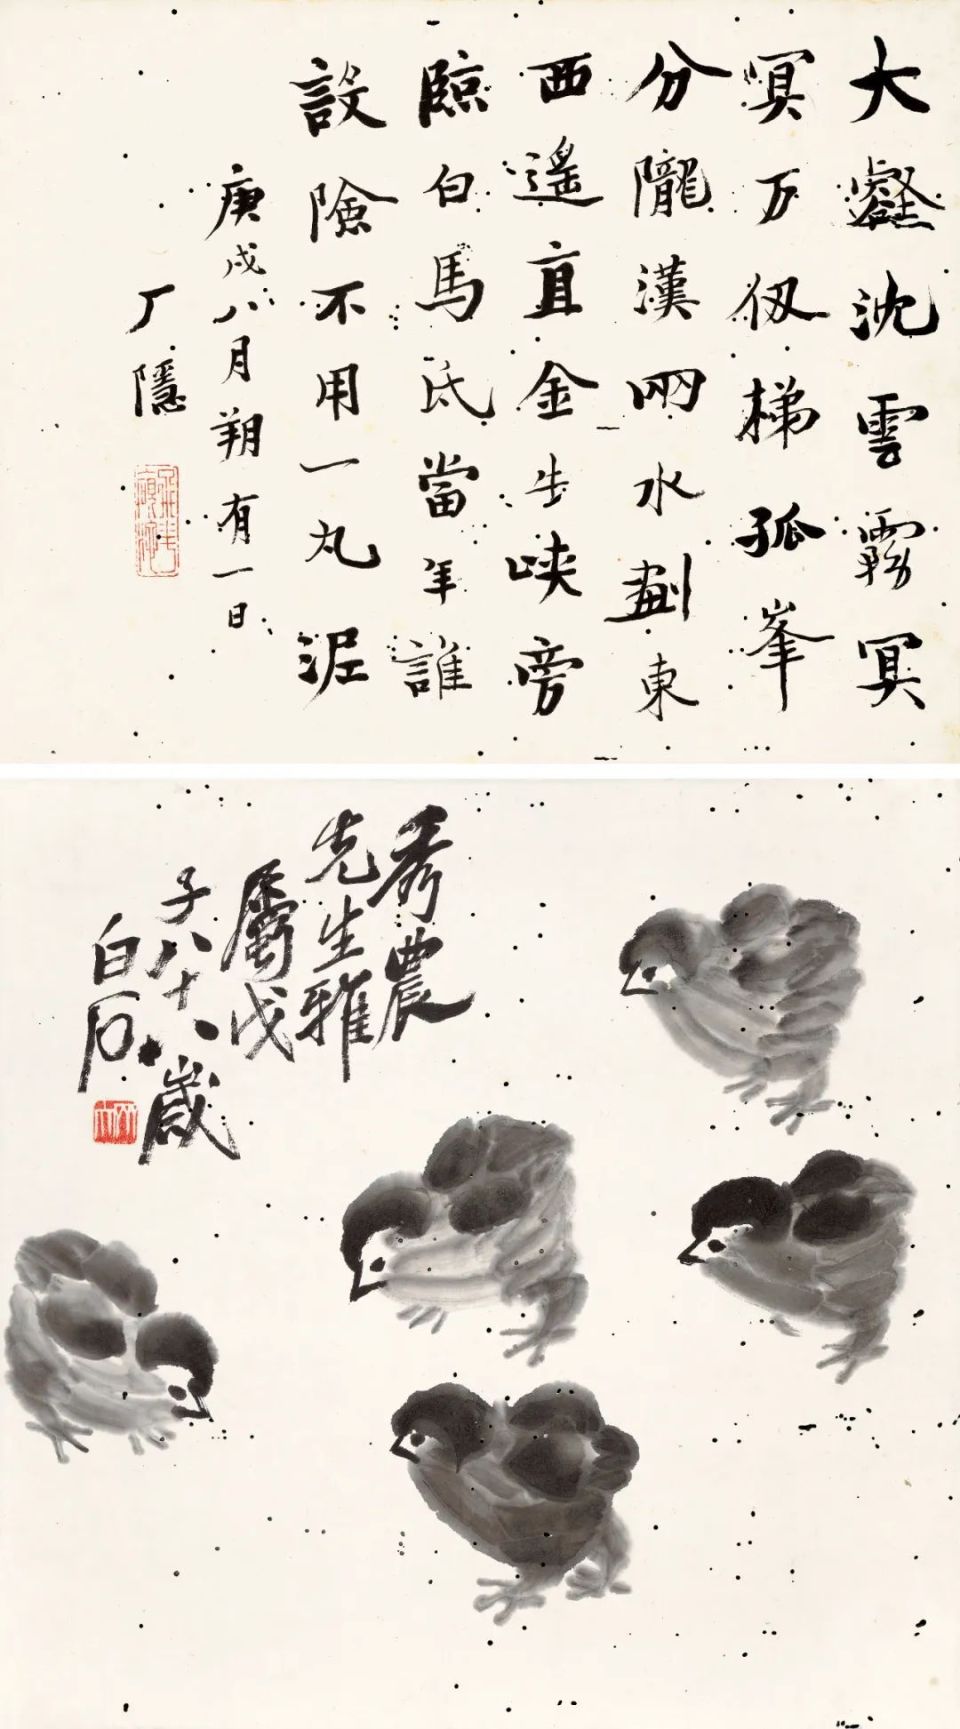 大壑沈雲霧冥
冥万仭梯孤峯
分隴漢兩水劃東
西遙直金牛峽旁
臨白馬氐當年誰
設險不用一丸泥
庚戌八月朔有一日
厂隱
秀農
先生雅
屬戊
子八十八歲
白石